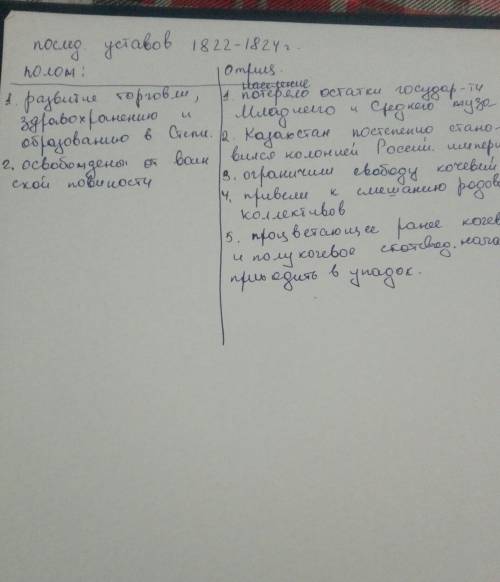 послед. уставов 1822-1824 г.
полож:
1. развитие торговли,
здравохранению и
образованию в Степи.
2. освобождены от воин
ской повиности
Отриц.
население
1. потеряло остатки государ-ти
Младшего и Среднего жуза
2. Казахстан постепенно стано-
вился колонией Россий. импери
3. ограничили свободу кочевий
4. привели к смешанию родов
коллективов
5. процветающее ранее кочев
и полукочевое скотовод. нача
приходить в упадок.